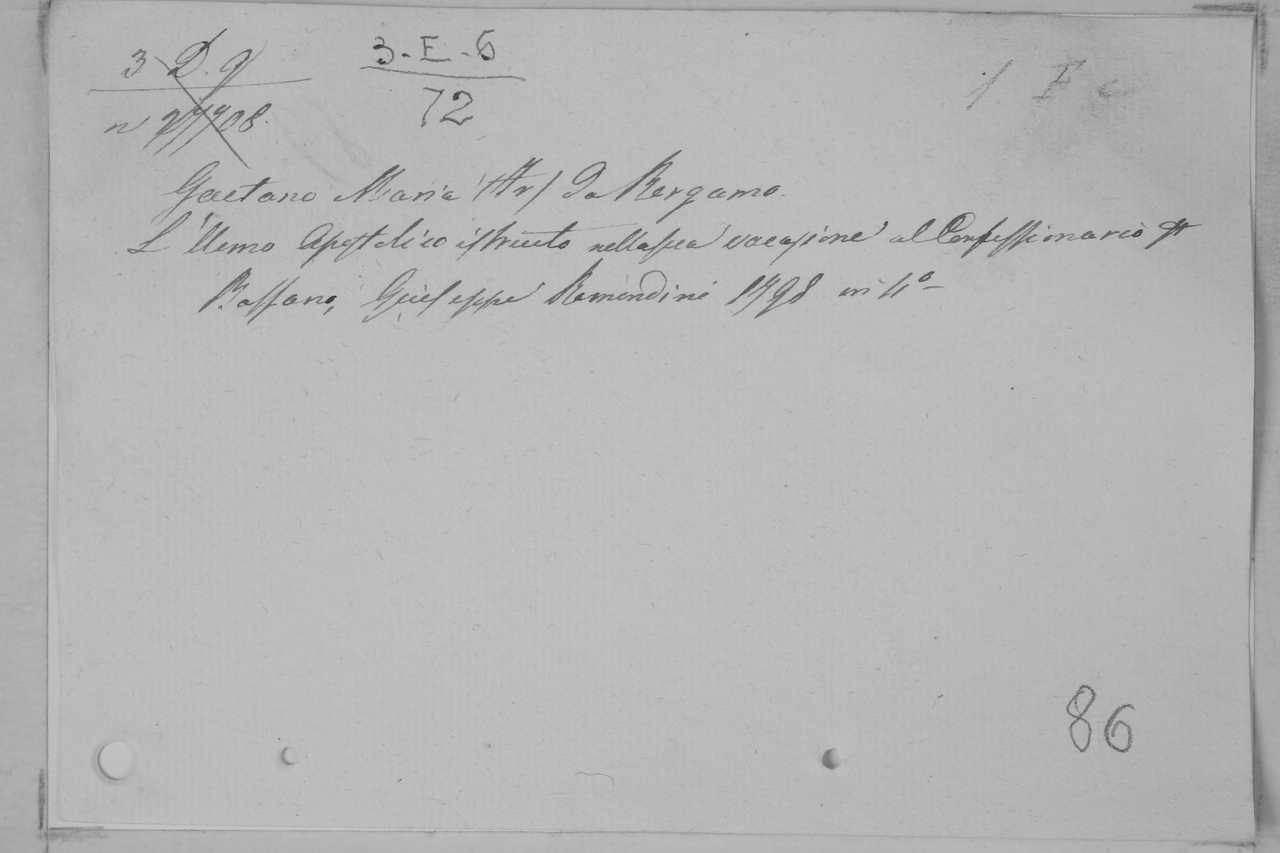 3-D.9 3-E-6
n 27708. 72
Gaetano Maria (Fr) Da Bergamo.
L'Uomo Apostolico istruito nella sua vocazione al Confessionario
Bassano, Giuseppe Remondini 1798 in 4º
86